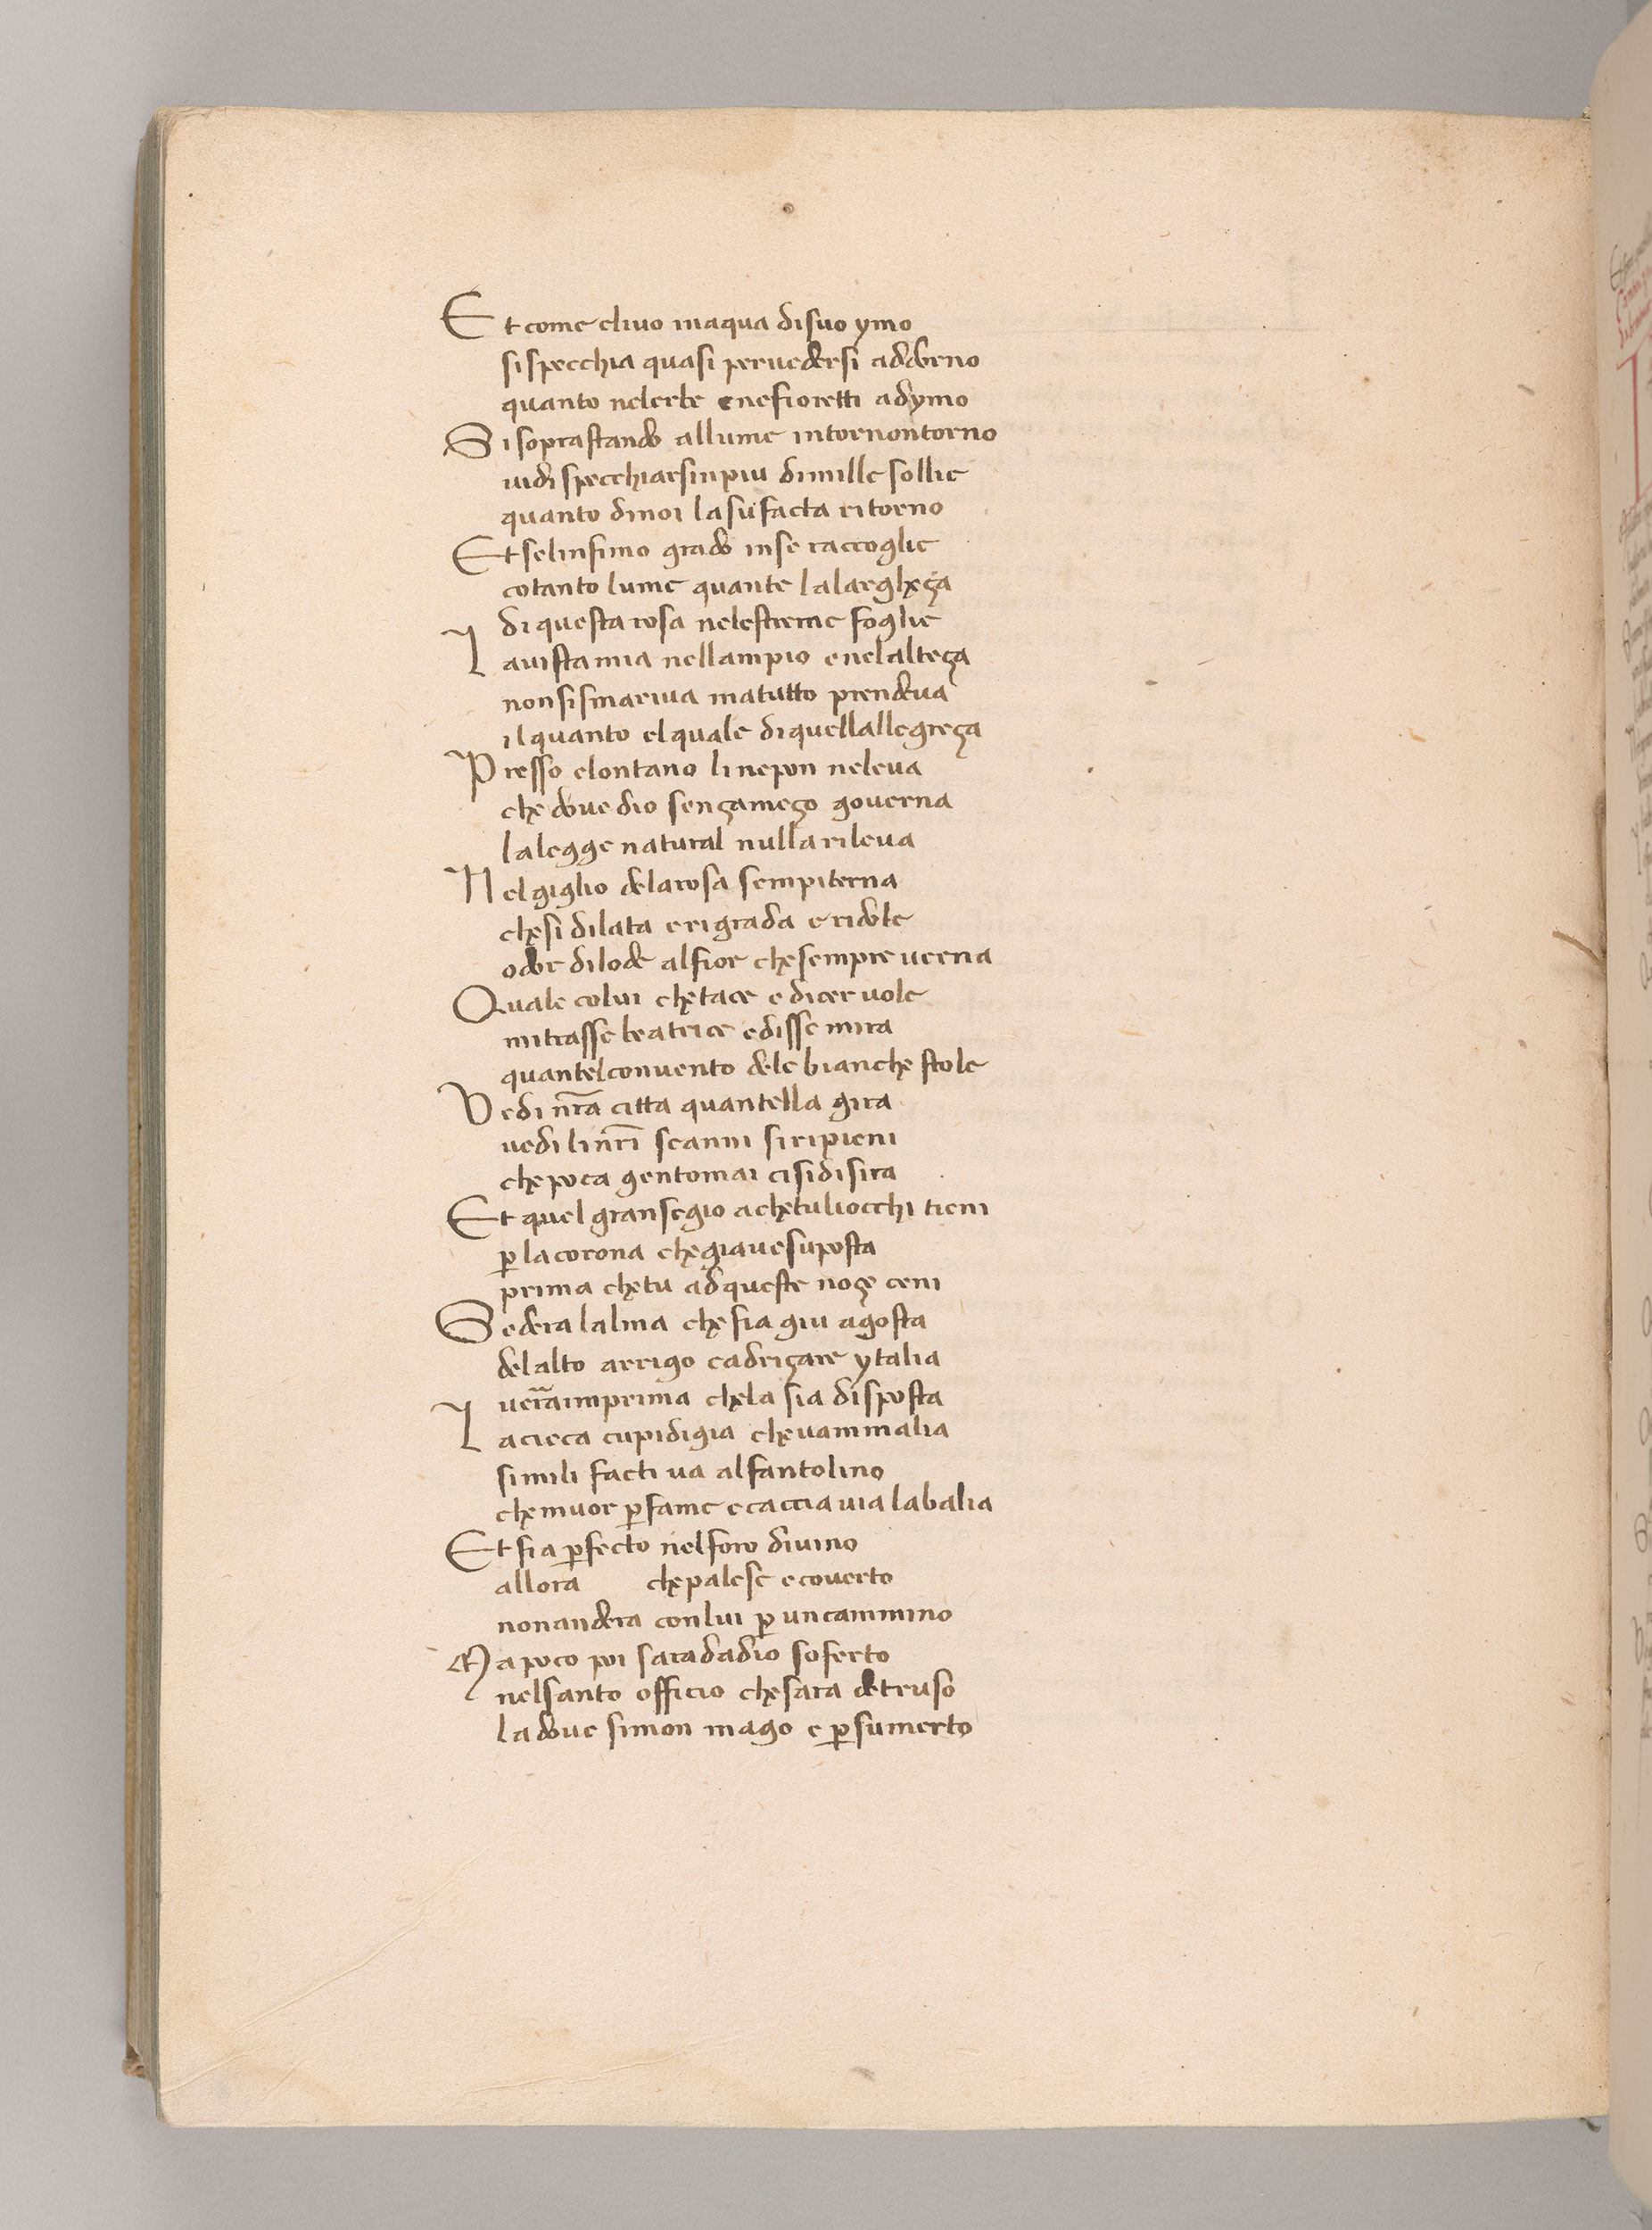 Et come clivo inaqua disuo ymo
sispecchia quasi pervedersi addorno
quanto nelerbe enefioretti adymo
Si soprastando allume intornontorno
vidi specchiarsinpiu dimille sollie
quanto dinoi lasu facta ritorno
Et selinfimo grado inse raccoglie
cotanto lume quante lalargheça
di questa rosa nelestreme foglie
La vista mia nellampio enelalteça
non sismariva matutto prendeva
il quanto elquale diquellallegreça
Presso elontano li nepon neleva
che dove dio sença meço governa
la legge natural nulla rileva
Nel giglio dela rosa sempiterna
chesi dilata erigrada eridole
odor dilode alfior che sempre verna
Quale colui che tace e dicer vole
mitrasse beatrice edisse mira
quantelconvento dele bianche stole
Vedi nr̄a citta quantella gira
vedi li nr̄i scanni si ripieni
che poca gentomai cisidisira
Et quel gran segio a che tuliocchi tieni
ꝑ la corona che giavesuposta
prima che tu ad queste noçe ceni
Sedera lalma che fia giu agosta
delalto arrigo cadriçare ytalia
verr̄a imprima chela sia disposta
La cieca cupidigia che vammalia
simili facti va alfantolino
che muor ꝑ fame e caccia via labalia
Et fia ꝑfecto nelforo divino
allora che palese e coverto
non andera conlui ꝑ uncammino
Ma poco poi sara dadio soferto
nelsanto officio che sara detruso
la dove simon mago e ꝑ sumerto